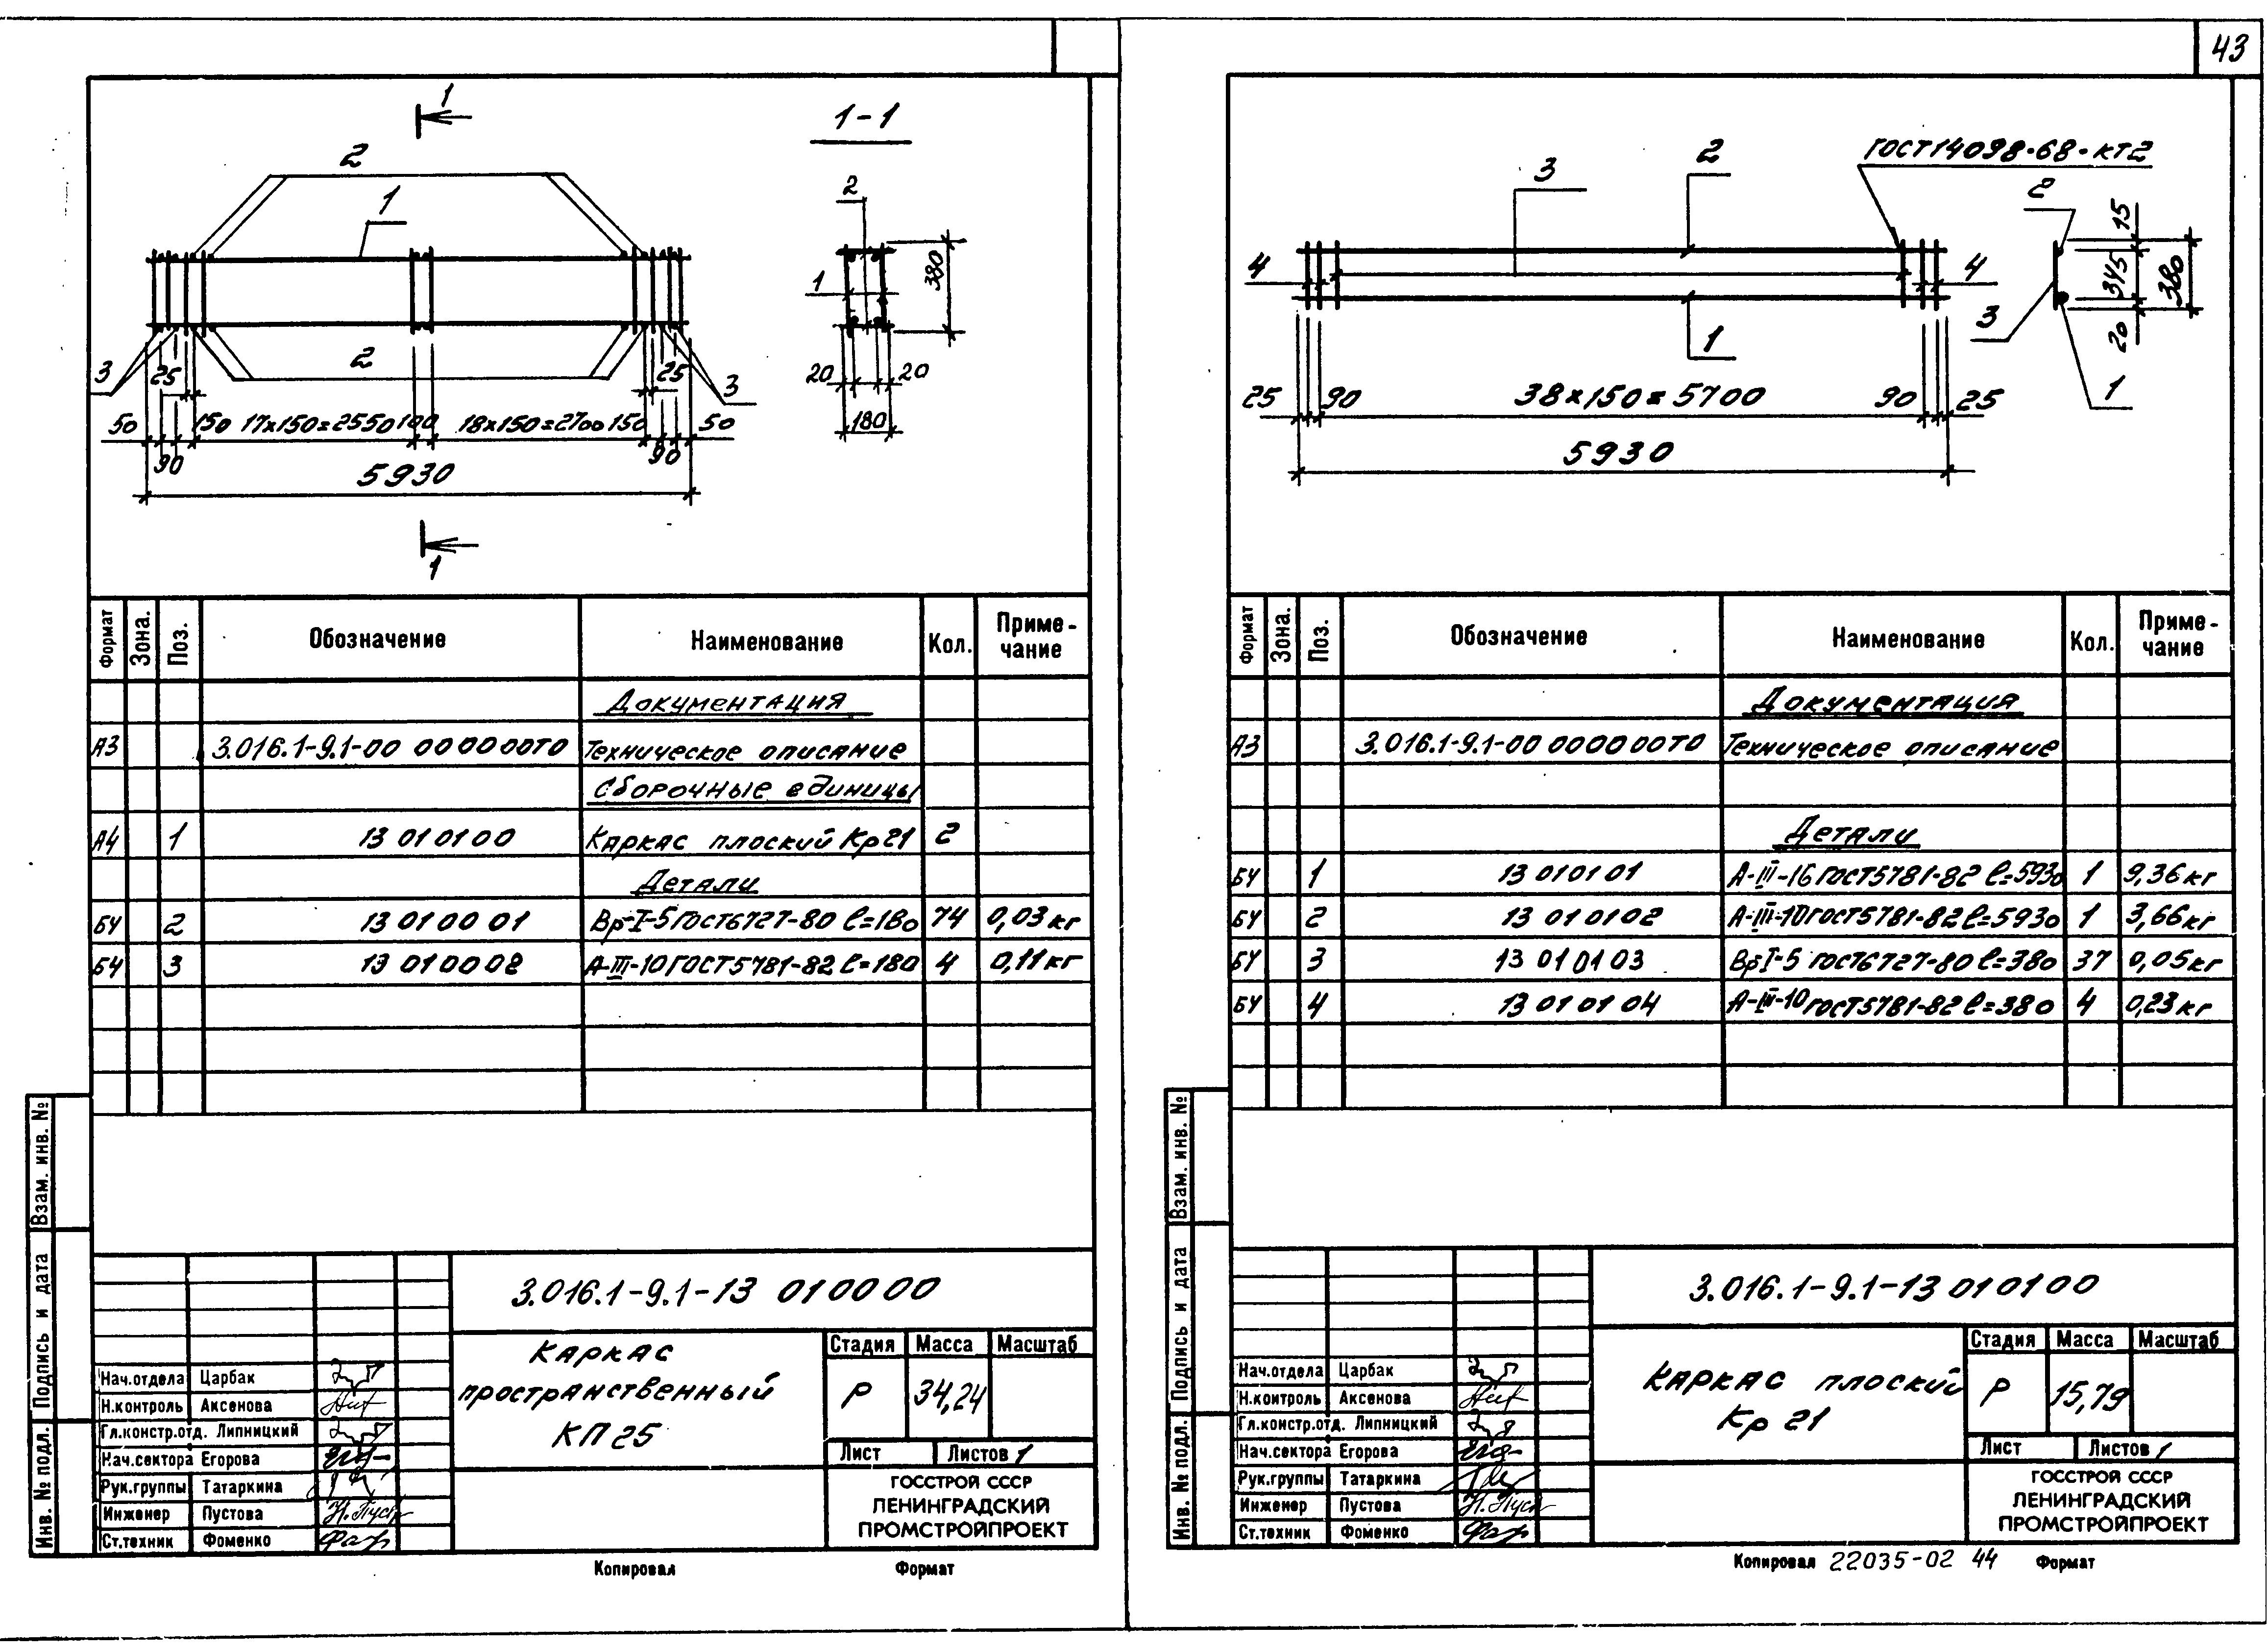 43
1
1-1
2
1
2
1
380
2
3
25
25
3
50
150
17×150=2550
100
18×150=2700
150
50
90
90
5930
20
20
180
1
Формат
Зона.
Поз.
Обозначение
Наименование
Кол.
Приме-
чание
Документация
А3 3.016.1-9.1-00 000000ТО Техническое описание
Сборочные единицы
А4 1 13 010100 Каркас плоский Кр21 2
Детали
БЧ 2 13 010001 Вр-I-5 ГОСТ6727-80 ℓ=180 74 0,03кг
БЧ 3 13 010002 А-III-10 ГОСТ5781-82 ℓ=180 4 0,11кг
Взам. инв. №
Подпись и дата
Инв. № подл.
3.016.1-9.1-13 010000
Каркас
пространственный
КП25
Стадия Масса Масштаб
Р 34,24
Лист Листов 1
ГОССТРОЙ СССР
ЛЕНИНГРАДСКИЙ
ПРОМСТРОЙПРОЕКТ
Нач.отдела Царбак
Н.контроль Аксенова
Гл.констр.отд. Липницкий
Нач.сектора Егорова
Рук.группы Татаркина
Инженер Пустова
Ст.техник Фоменко
Копировал Формат
ГОСТ14098-68-КТ2
3
2
2
15
4
4
345
380
3
20
1
1
25
90
38×150=5700
90
25
5930
Формат
Зона.
Поз.
Обозначение
Наименование
Кол.
Приме-
чание
Документация
А3 3.016.1-9.1-00 000000ТО Техническое описание
Детали
БЧ 1 13 010101 А-III-16 ГОСТ5781-82 ℓ=5930 1 9,36кг
БЧ 2 13 010102 А-III-10 ГОСТ5781-82 ℓ=5930 1 3,66кг
БЧ 3 13 010103 ВрI-5 ГОСТ6727-80 ℓ=380 37 0,05кг
БЧ 4 13 010104 А-III-10 ГОСТ5781-82 ℓ=380 4 0,23кг
Взам. инв. №
Подпись и дата
Инв. № подл.
3.016.1-9.1-13 010100
Каркас плоский
Кр 21
Стадия Масса Масштаб
Р 15,79
Лист Листов 1
ГОССТРОЙ СССР
ЛЕНИНГРАДСКИЙ
ПРОМСТРОЙПРОЕКТ
Нач.отдела Царбак
Н.контроль Аксенова
Гл.констр.отд. Липницкий
Нач.сектора Егорова
Рук.группы Татаркина
Инженер Пустова
Ст.техник Фоменко
Копировал 22035-02 44 Формат